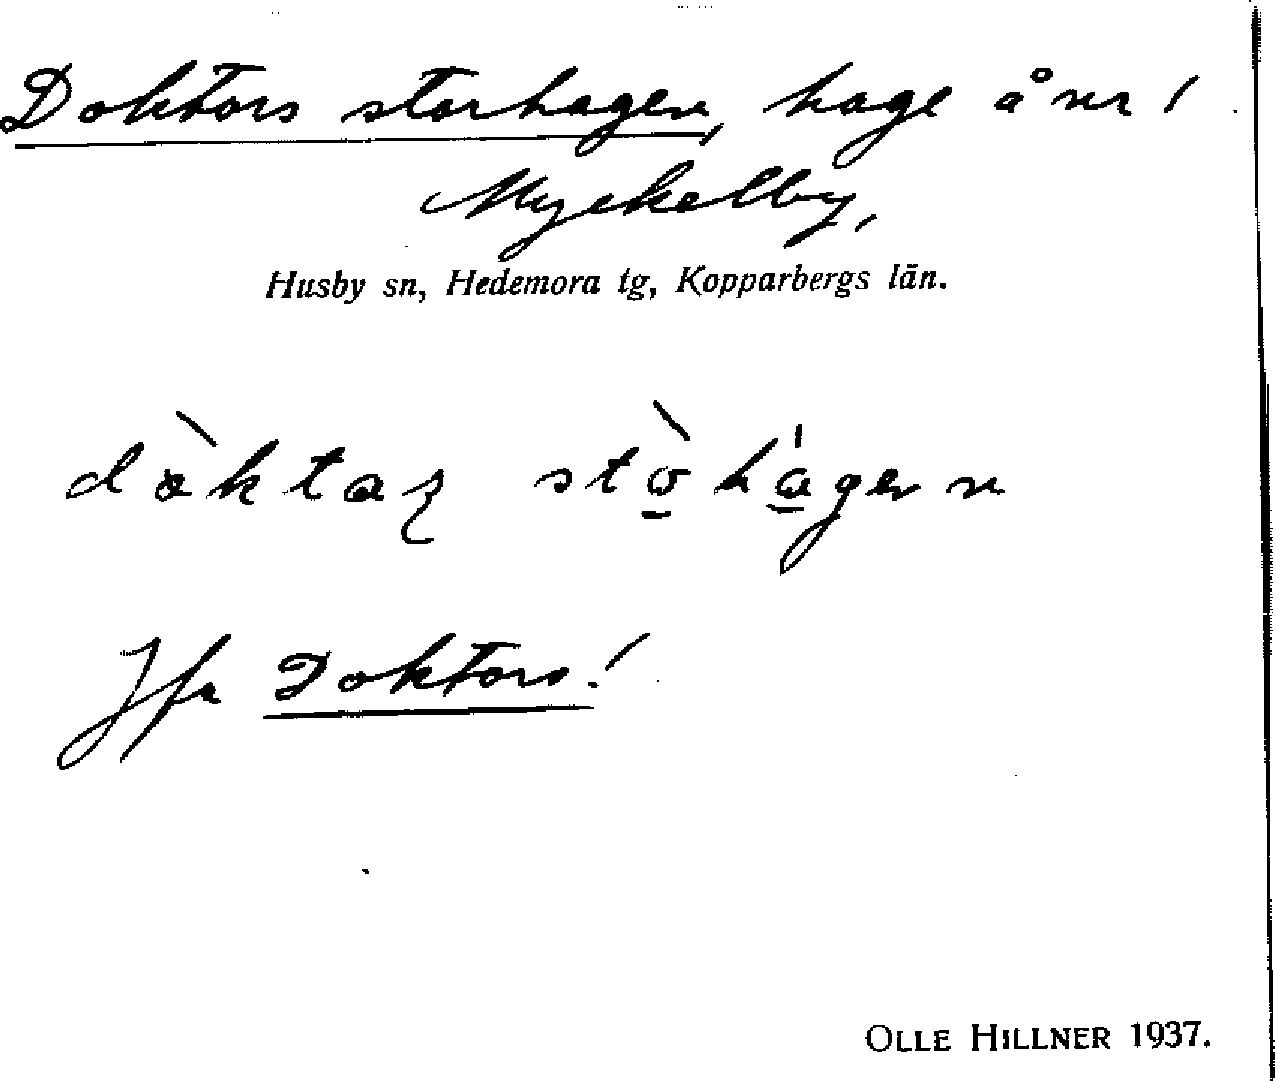 Doktors storhagen, hage å nr 1
Myckelby,
Husby sn, Hedemora tg, Kopparbergs län.
dòktaʂ stò̲há̲gen
Jfr Doktors!
OLLE HILLNER 1937.